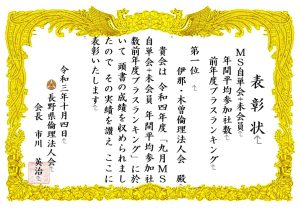 表彰状
MS自単会+未会員
年間平均参加社数
前年度プラスランキング
第一位
伊那・木曽倫理法人会 殿
貴会は 令和四年度「九月MS
自単会+未会員 年間平均参加社
数前年度プラスランキング」に於
いて 頭書の成績を収められまし
たので その実績を讃え ここに
表彰いたします
令和三年十月四日
長野県倫理法人会
会長 市川 英治